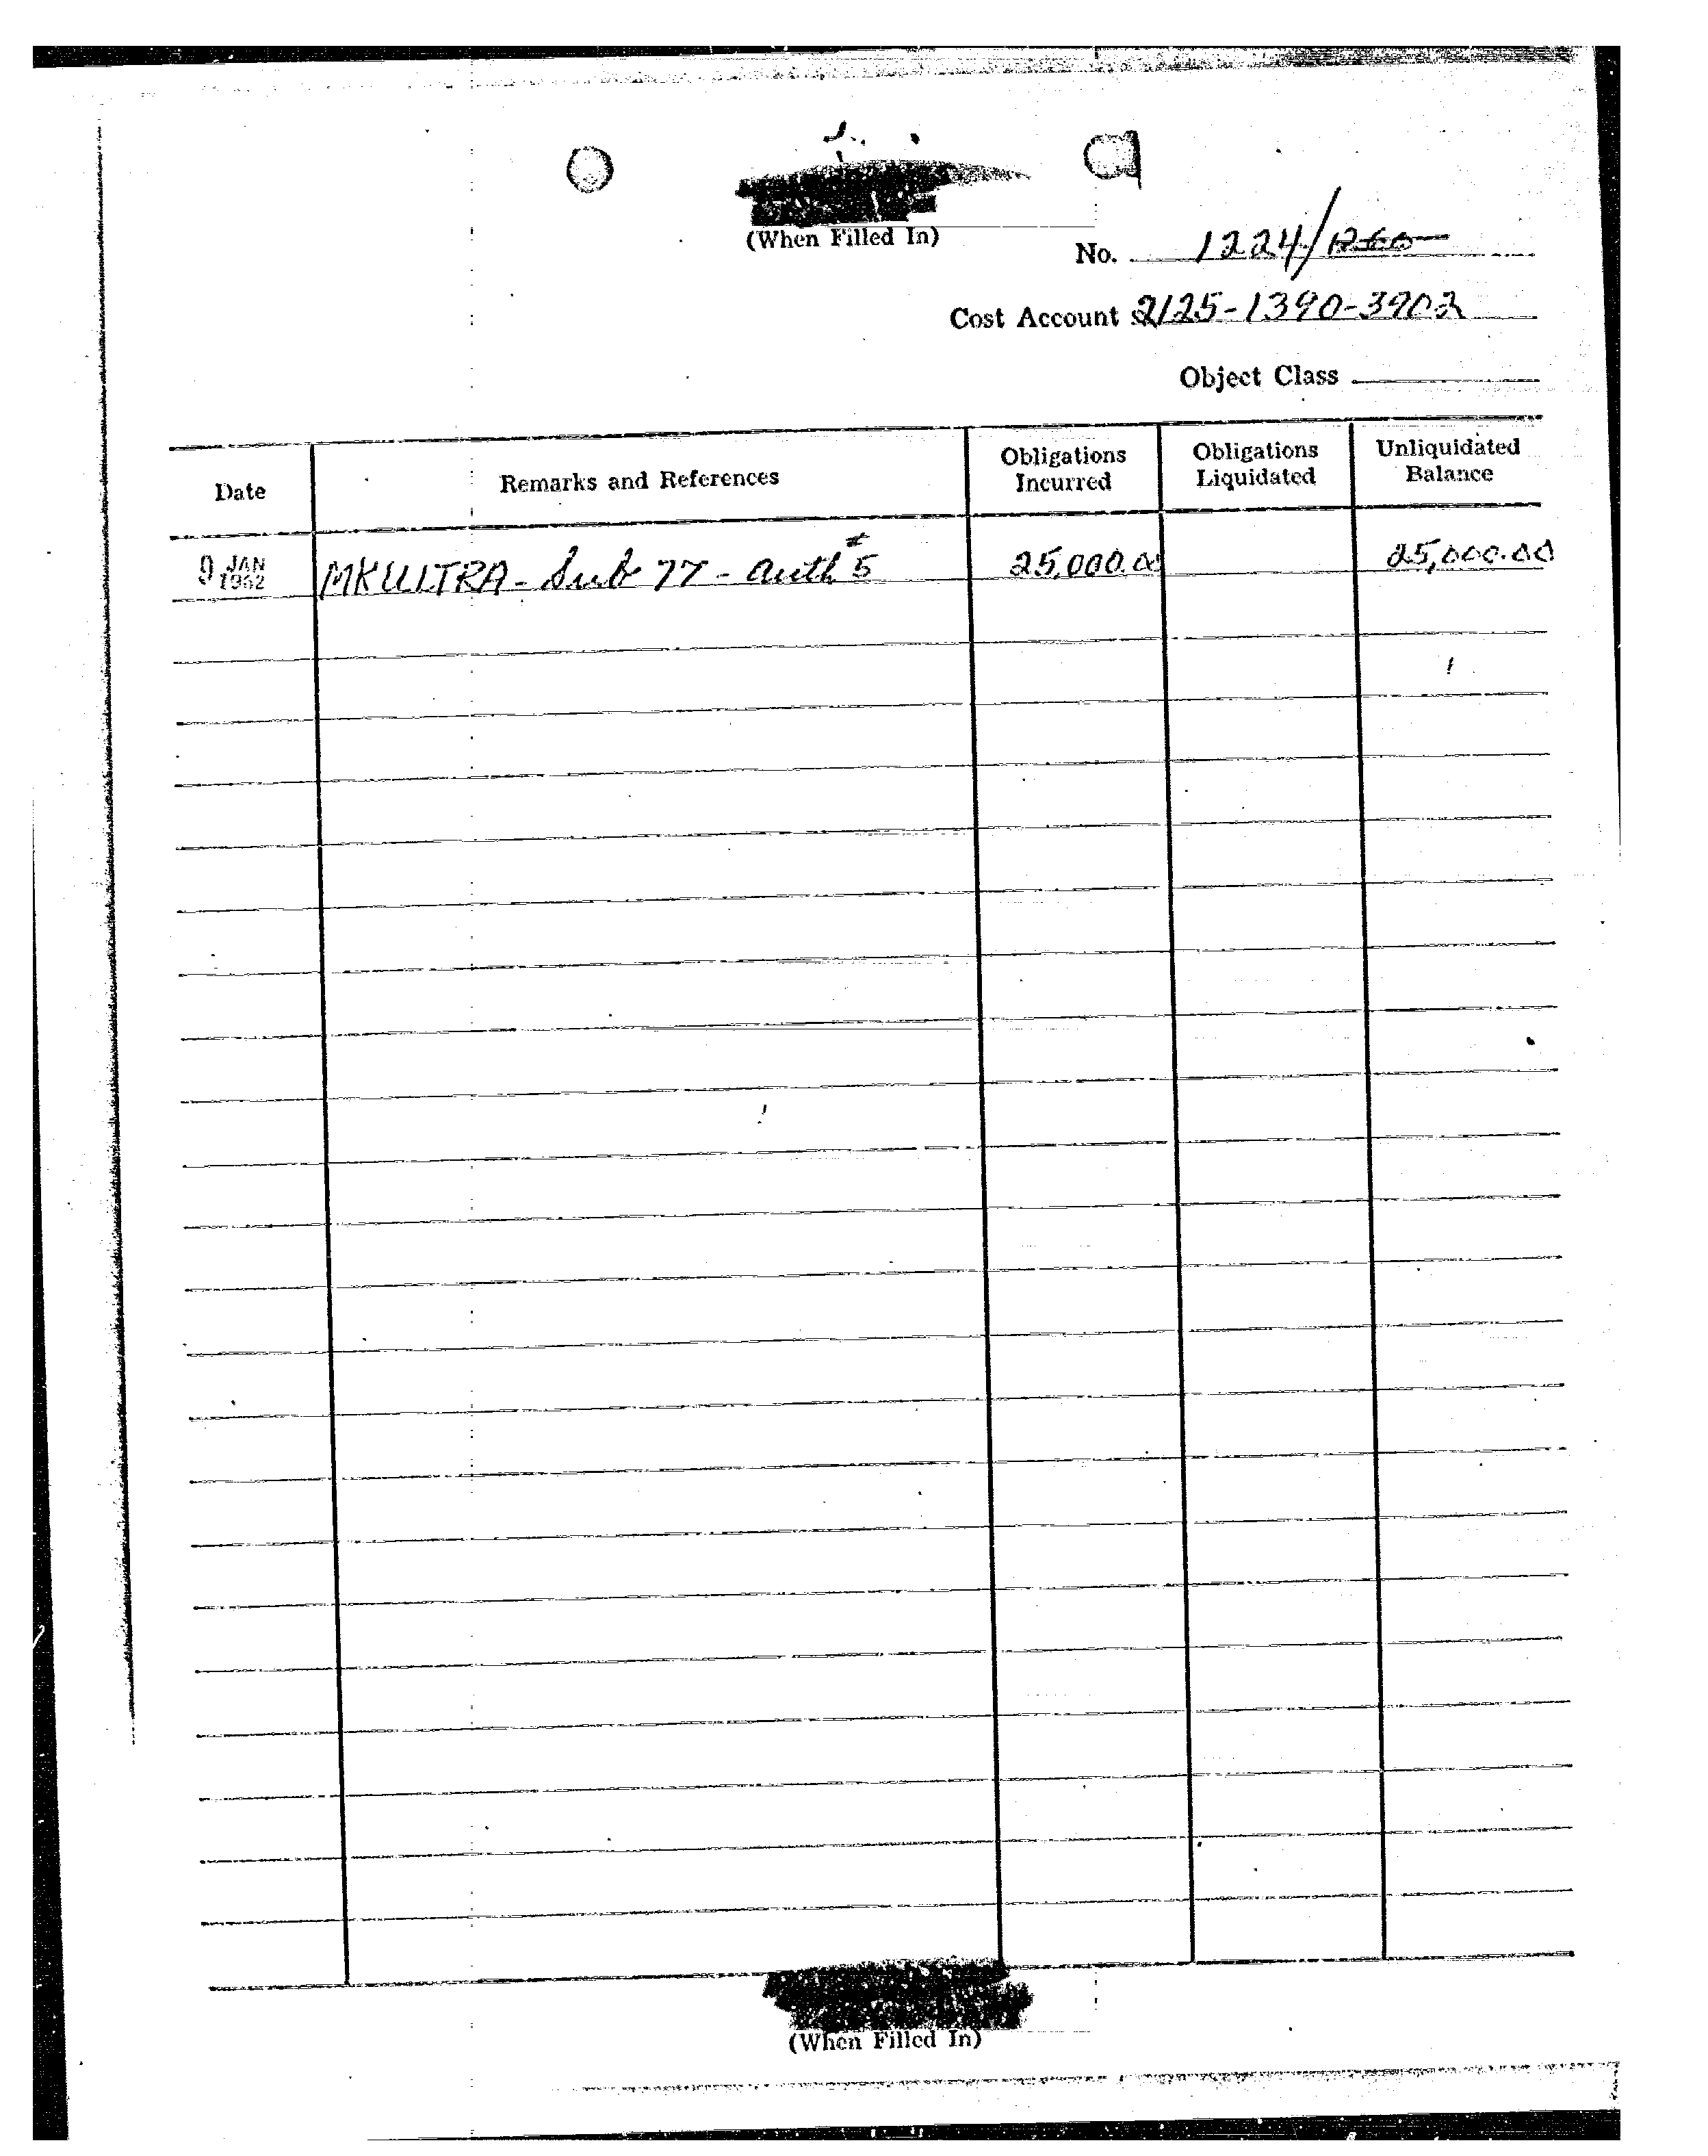 (When Filled In)
No. 1224/
Cost Account 2125-1390-3902
Object Class
Date Remarks and References Obligations Incurred Obligations Liquidated Unliquidated Balance
9 JAN 1962 MKULTRA - Sub 77 - Auth #5 25,000.00 25,000.00
(When Filled In)